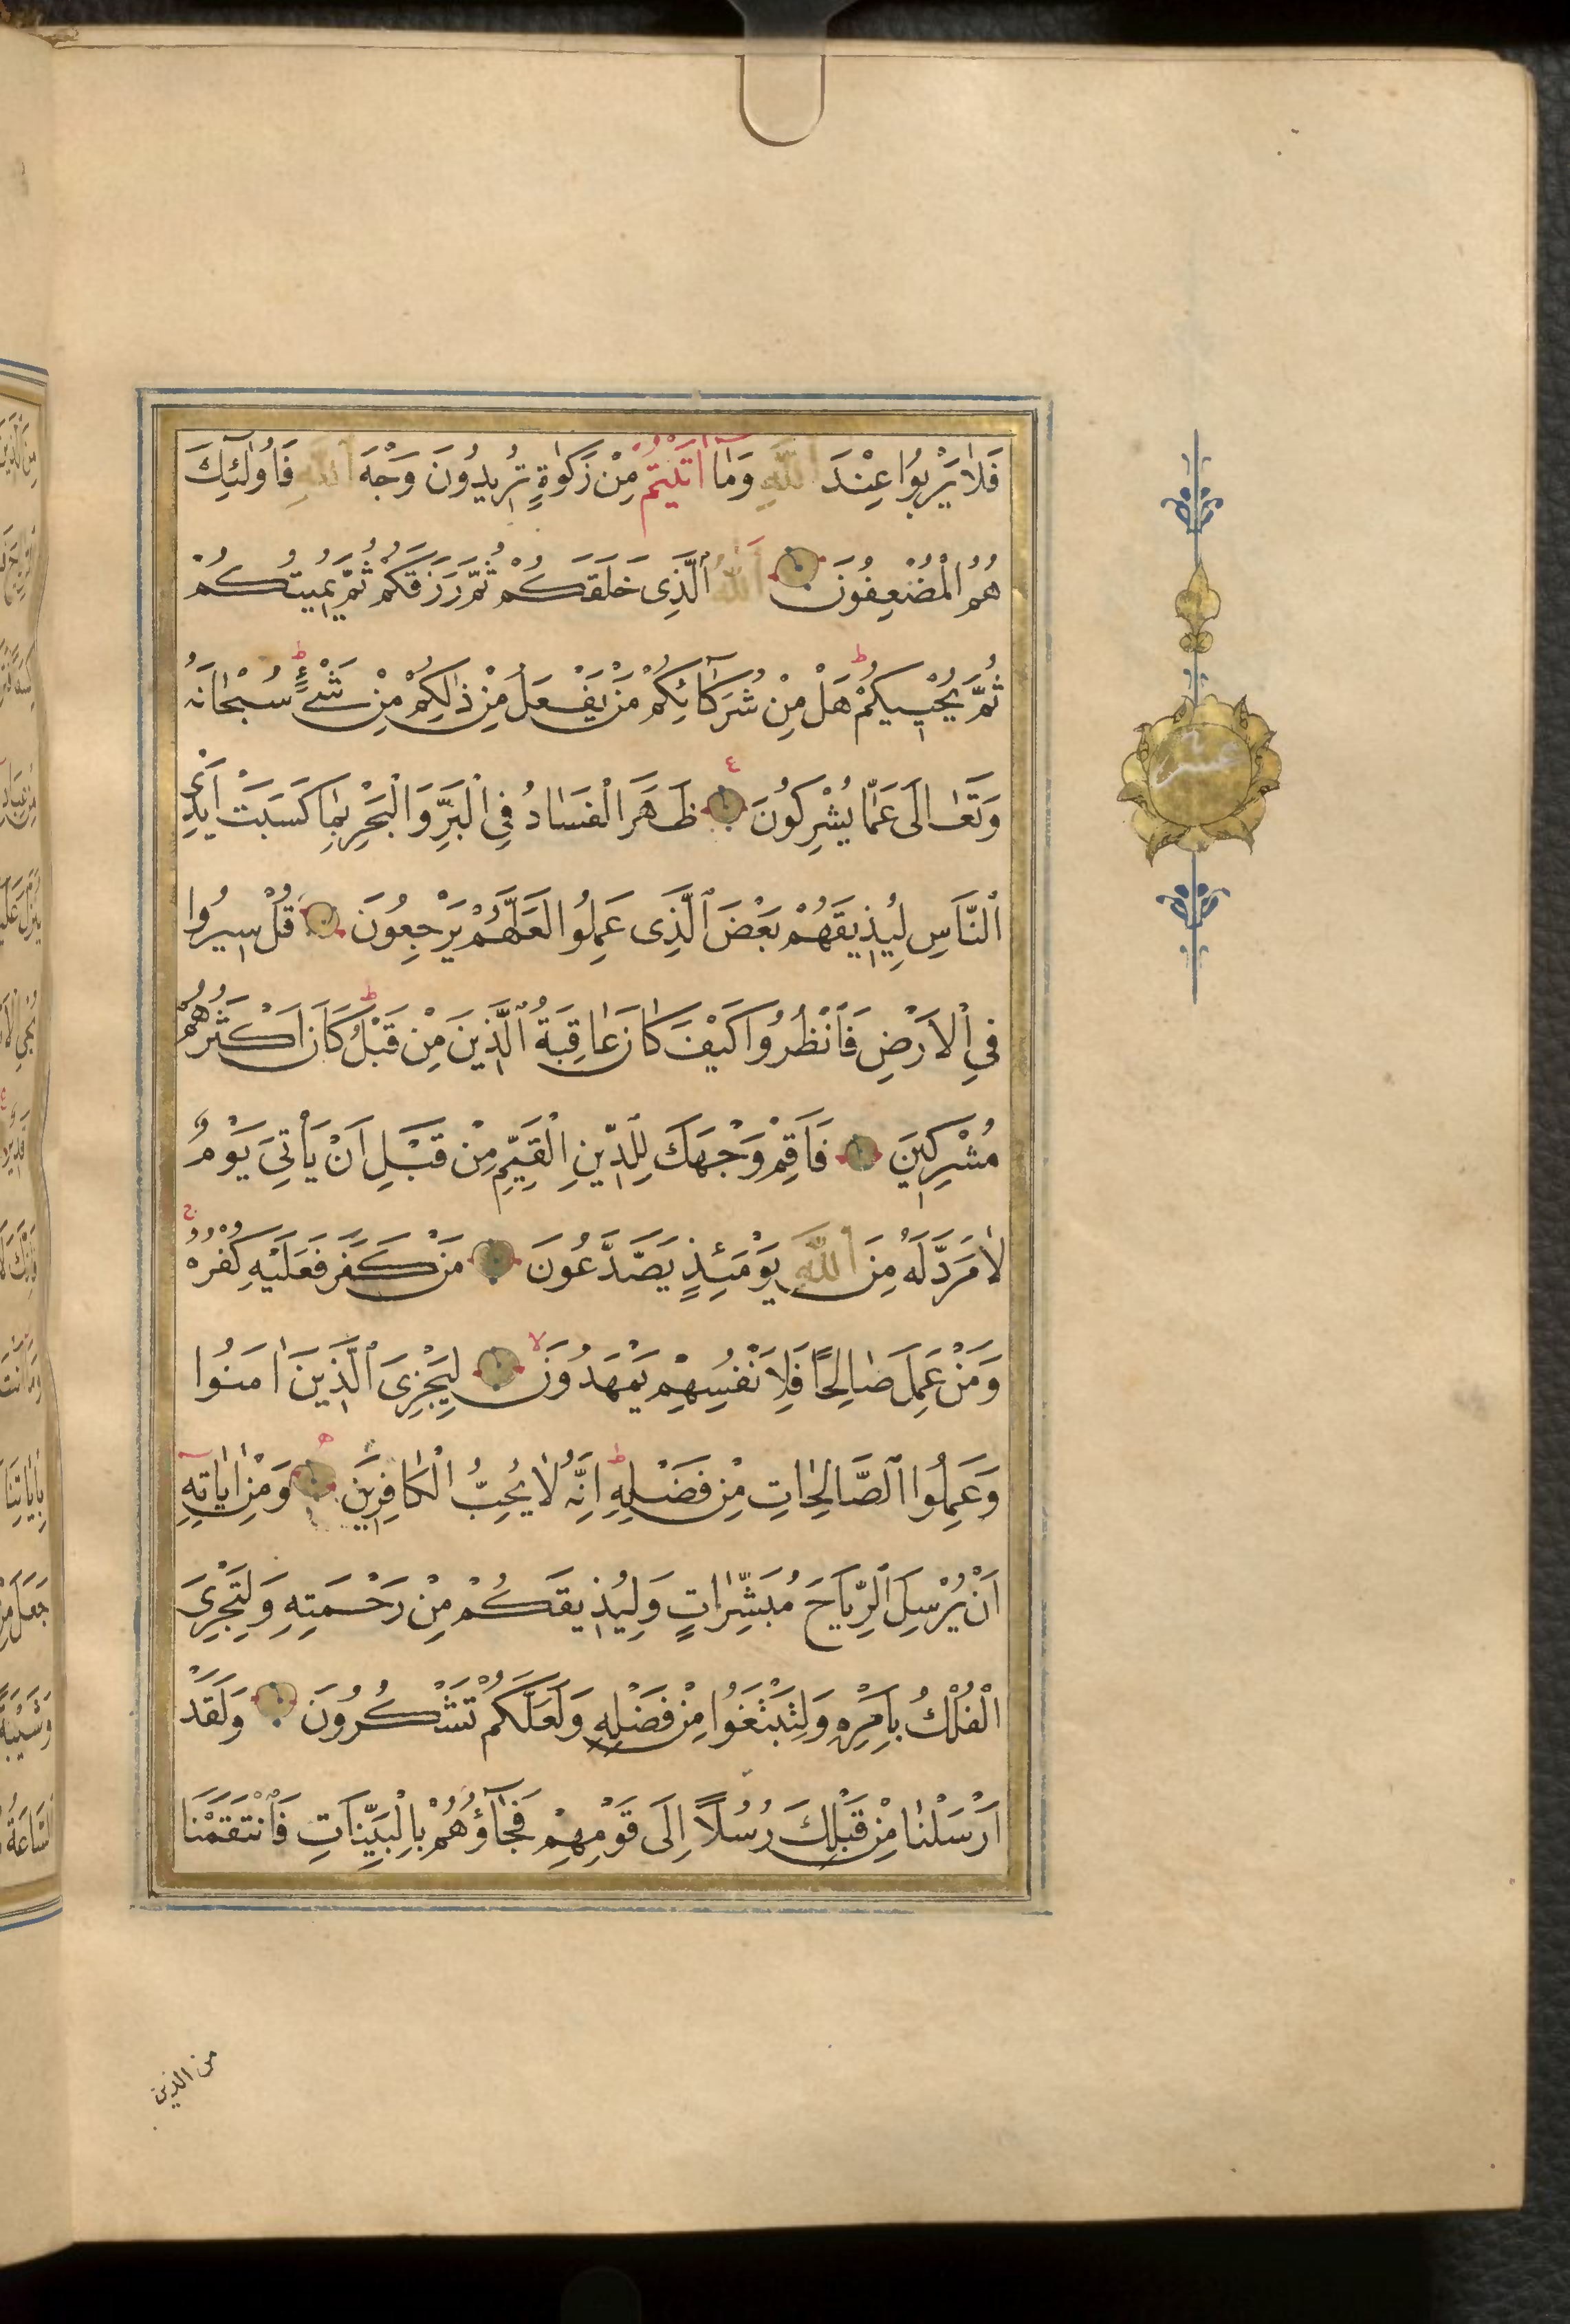 فَلَا يَرْبُوا عِنْدَ اللّٰهِ وَمَٓا اٰتَيْتُمْ مِنْ زَكٰوةٍ تُرِيدُونَ وَجْهَ اللّٰهِ فَاُولٰٓئِكَ
هُمُ الْمُضْعِفُونَ اَللّٰهُ الَّذِى خَلَقَكُمْ ثُمَّ رَزَقَكُمْ ثُمَّ يُمِيتُكُمْ
ثُمَّ يُحْيِيكُمْ ط هَلْ مِنْ شُرَكَٓائِكُمْ مَنْ يَفْعَلُ مِنْ ذٰلِكُمْ مِنْ شَىْءٍ ط سُبْحَانَهُ
وَتَعَالٰى عَمَّا يُشْرِكُونَ ٤ ظَهَرَ الْفَسَادُ فِى الْبَرِّ وَالْبَحْرِ بِمَا كَسَبَتْ اَيْدِى
النَّاسِ لِيُذِيقَهُمْ بَعْضَ الَّذِى عَمِلُوا لَعَلَّهُمْ يَرْجِعُونَ قُلْ سِيرُوا
فِى الْاَرْضِ فَانْظُرُوا كَيْفَ كَانَ عَاقِبَةُ الَّذِينَ مِنْ قَبْلُ ط كَانَ اَكْثَرُهُمْ
مُشْرِكِينَ فَاَقِمْ وَجْهَكَ لِلدِّينِ الْقَيِّمِ مِنْ قَبْلِ اَنْ يَأْتِىَ يَوْمٌ
لَا مَرَدَّ لَهُ مِنَ اللّٰهِ يَوْمَئِذٍ يَصَّدَّعُونَ مَنْ كَفَرَ فَعَلَيْهِ كُفْرُهُ ج
وَمَنْ عَمِلَ صَالِحًا فَلِاَنْفُسِهِمْ يَمْهَدُونَ لا لِيَجْزِىَ الَّذِينَ اٰمَنُوا
وَعَمِلُوا الصَّالِحَاتِ مِنْ فَضْلِهِ ط اِنَّهُ لَا يُحِبُّ الْكَافِرِينَ ه وَمِنْ اٰيَاتِهِٓ
اَنْ يُرْسِلَ الرِّيَاحَ مُبَشِّرَاتٍ وَلِيُذِيقَكُمْ مِنْ رَحْمَتِهِ وَلِتَجْرِىَ
الْفُلْكُ بِاَمْرِهِ وَلِتَبْتَغُوا مِنْ فَضْلِهِ وَلَعَلَّكُمْ تَشْكُرُونَ وَلَقَدْ
اَرْسَلْنَا مِنْ قَبْلِكَ رُسُلًا اِلٰى قَوْمِهِمْ فَجَٓاؤُهُمْ بِالْبَيِّنَاتِ فَانْتَقَمْنَا
من الذين